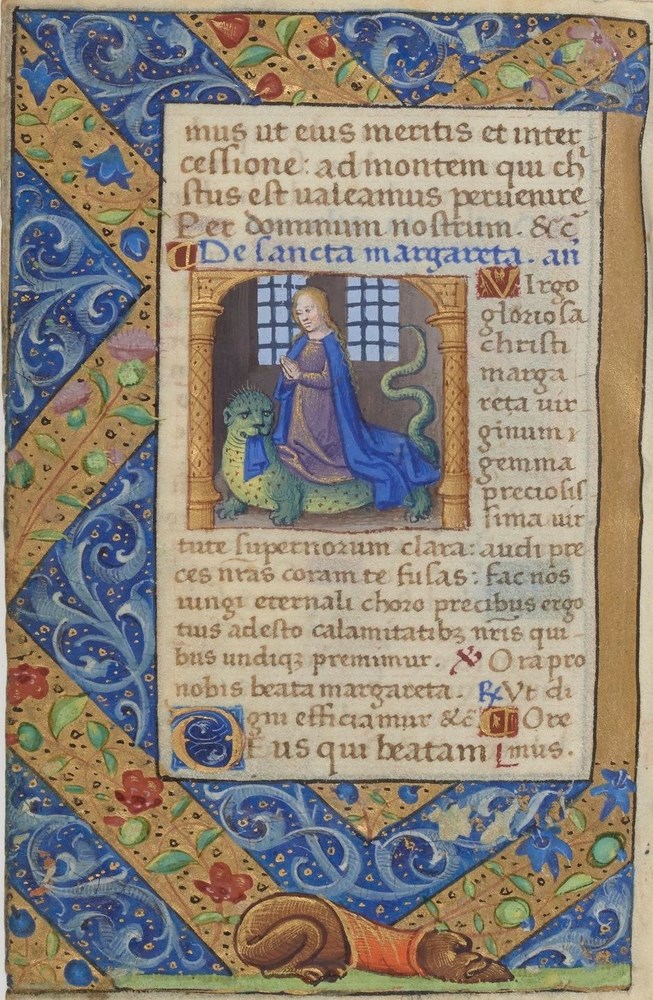 mus ut eius meritis et inter
cessione: ad montem qui ch̅
stus est ualeamus peruenire
Per dominum nostrum. &c̅
De sancta margareta. an̅
Virgo
gloriosa
christi
marga
reta uir
ginum
gemma
preciosis
sima uir
tute supernorum clara: audi pre
ces nr̅as coram te fusas: fac nos
iungi eternali choro precibus ergo
tuis adesto calamitatibꝫ nr̅is qui
bus undiqꝫ premimur. ℣ Ora pro
nobis beata margareta. ℟ Ut di
gni efficiamur &c̅ Ore
Deus qui beatam mus.